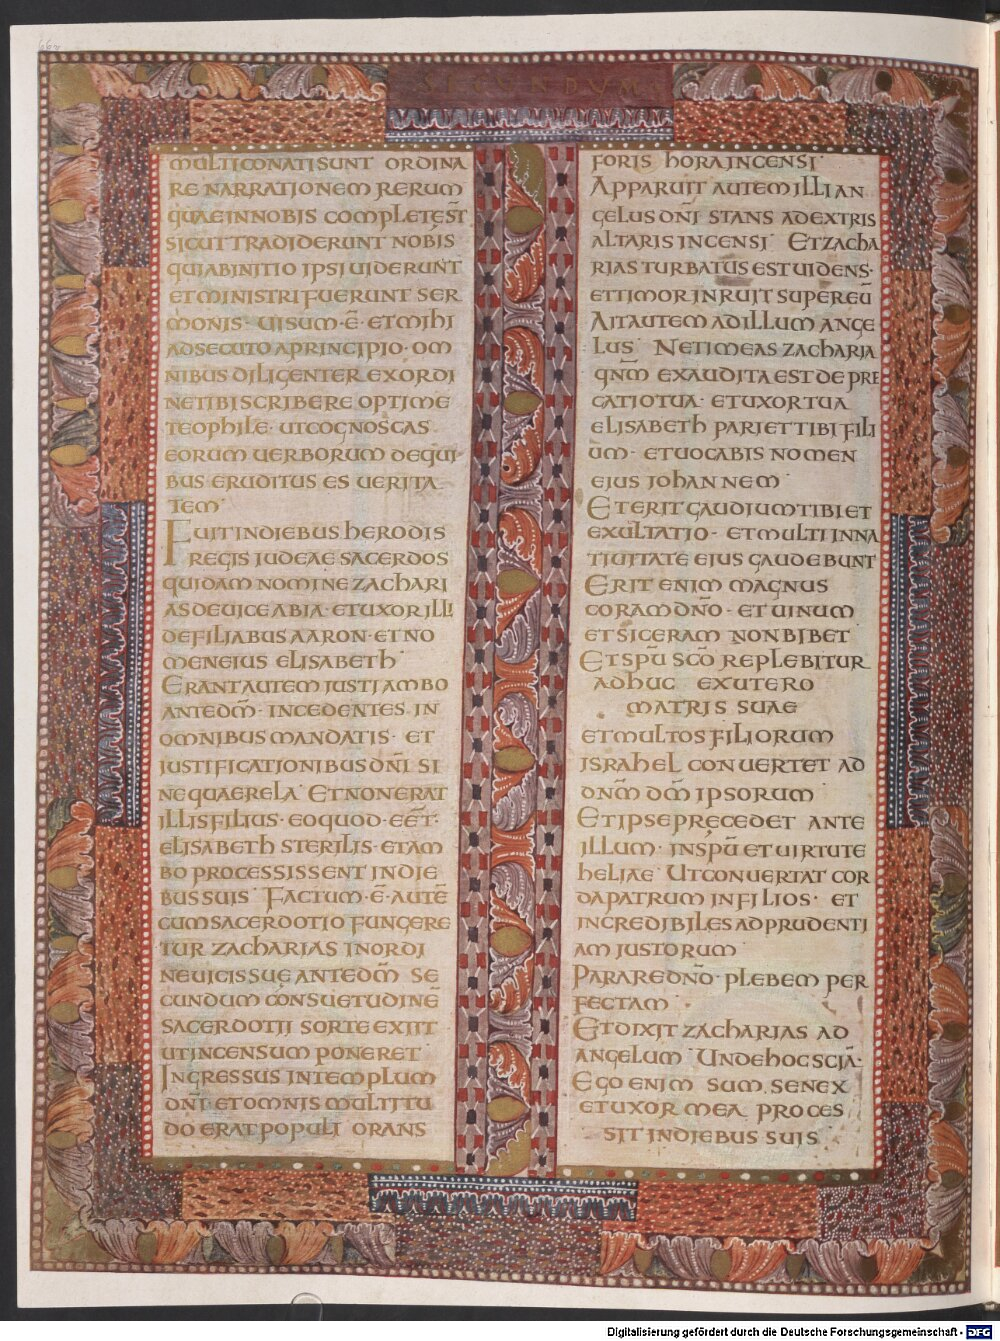 SECUNDUM
MULTI CONATI SUNT ORDINA
RE NARRATIONEM RERUM
QUAE IN NOBIS COMPLETE S̄T
SICUT TRADIDERUNT NOBIS
QUI AB INITIO IPSI UIDERUNT
ET MINISTRI FUERUNT SER
MONIS · UISUM · Ē · ET MIHI
ADSECUTO A PRINCIPIO · OM
NIBUS DILIGENTER EX ORDI
NE TIBI SCRIBERE OPTIME
TEOPHILE · UT COGNOSCAS
EORUM UERBORUM DE QUI
BUS ERUDITUS ES UERITA
TEM ·
FUIT IN DIEBUS HERODIS
REGIS IUDEAE SACERDOS
QUIDAM NOMINE ZACHARI
AS DE UICE ABIA · ET UXOR ILLI
DE FILIABUS AARON · ET NO
MEN EIUS ELISABETH ·
ERANT AUTEM IUSTI AMBO
ANTE DM̄ · INCEDENTES IN
OMNIBUS MANDATIS · ET
IUSTIFICATIONIBUS DN̄I SI
NE QUAERELA · ET NON ERAT
ILLIS FILIUS · EO QUOD · EĒT ·
ELISABETH STERILIS · ET AM
BO PROCESSISSENT IN DIE
BUS SUIS · FACTUM · Ē · AUTĒ
CUM SACERDOTIO FUNGERE
TUR ZACHARIAS IN ORDI
NE UICIS SUE ANTE DM̄ SE
CUNDUM CONSUETUDINĒ
SACERDOTII SORTE EXIIT
UT INCENSUM PONERET ·
INGRESSUS IN TEMPLUM
DN̄I · ET OMNIS MULTITU
DO ERAT POPULI ORANS
FORIS HORA INCENSI ·
APPARUIT AUTEM ILLI AN
GELUS DN̄I STANS A DEXTRIS
ALTARIS INCENSI · ET ZACHA
RIAS TURBATUS EST UIDENS ·
ET TIMOR INRUIT SUPER EŪ
AIT AUTEM AD ILLUM ANGE
LUS · NE TIMEAS ZACHARIA
QNM̄ EXAUDITA EST DEPRE
CATIO TUA · ET UXOR TUA
ELISABETH PARIET TIBI FILI
UM · ET UOCABIS NOMEN
EIUS IOHANNEM ·
ET ERIT GAUDIUM TIBI ET
EXULTATIO · ET MULTI IN NA
TIUITATE EIUS GAUDEBUNT
ERIT ENIM MAGNUS
CORAM DN̄O · ET UINUM
ET SICERAM NON BIBET
ET SPŪ SCŌ REPLEBITUR
ADHUC EX UTERO
MATRIS SUAE
ET MULTOS FILIORUM
ISRAHEL CONUERTET AD
DNM̄ DM̄ IPSORUM ·
ET IPSE PRECEDET ANTE
ILLUM · IN SPŪ ET UIRTUTE
HELIAE · UT CONUERTAT COR
DA PATRUM IN FILIOS · ET
INCREDIBILES AD PRUDENTI
AM IUSTORUM ·
PARARE DN̄O · PLEBEM PER
FECTAM ·
ET DIXIT ZACHARIAS AD
ANGELUM · UNDE HOC SCIĀ ·
EGO ENIM SUM SENEX
ET UXOR MEA PROCES
SIT IN DIEBUS SUIS ·
Digitalisierung gefördert durch die Deutsche Forschungsgemeinschaft - DFG